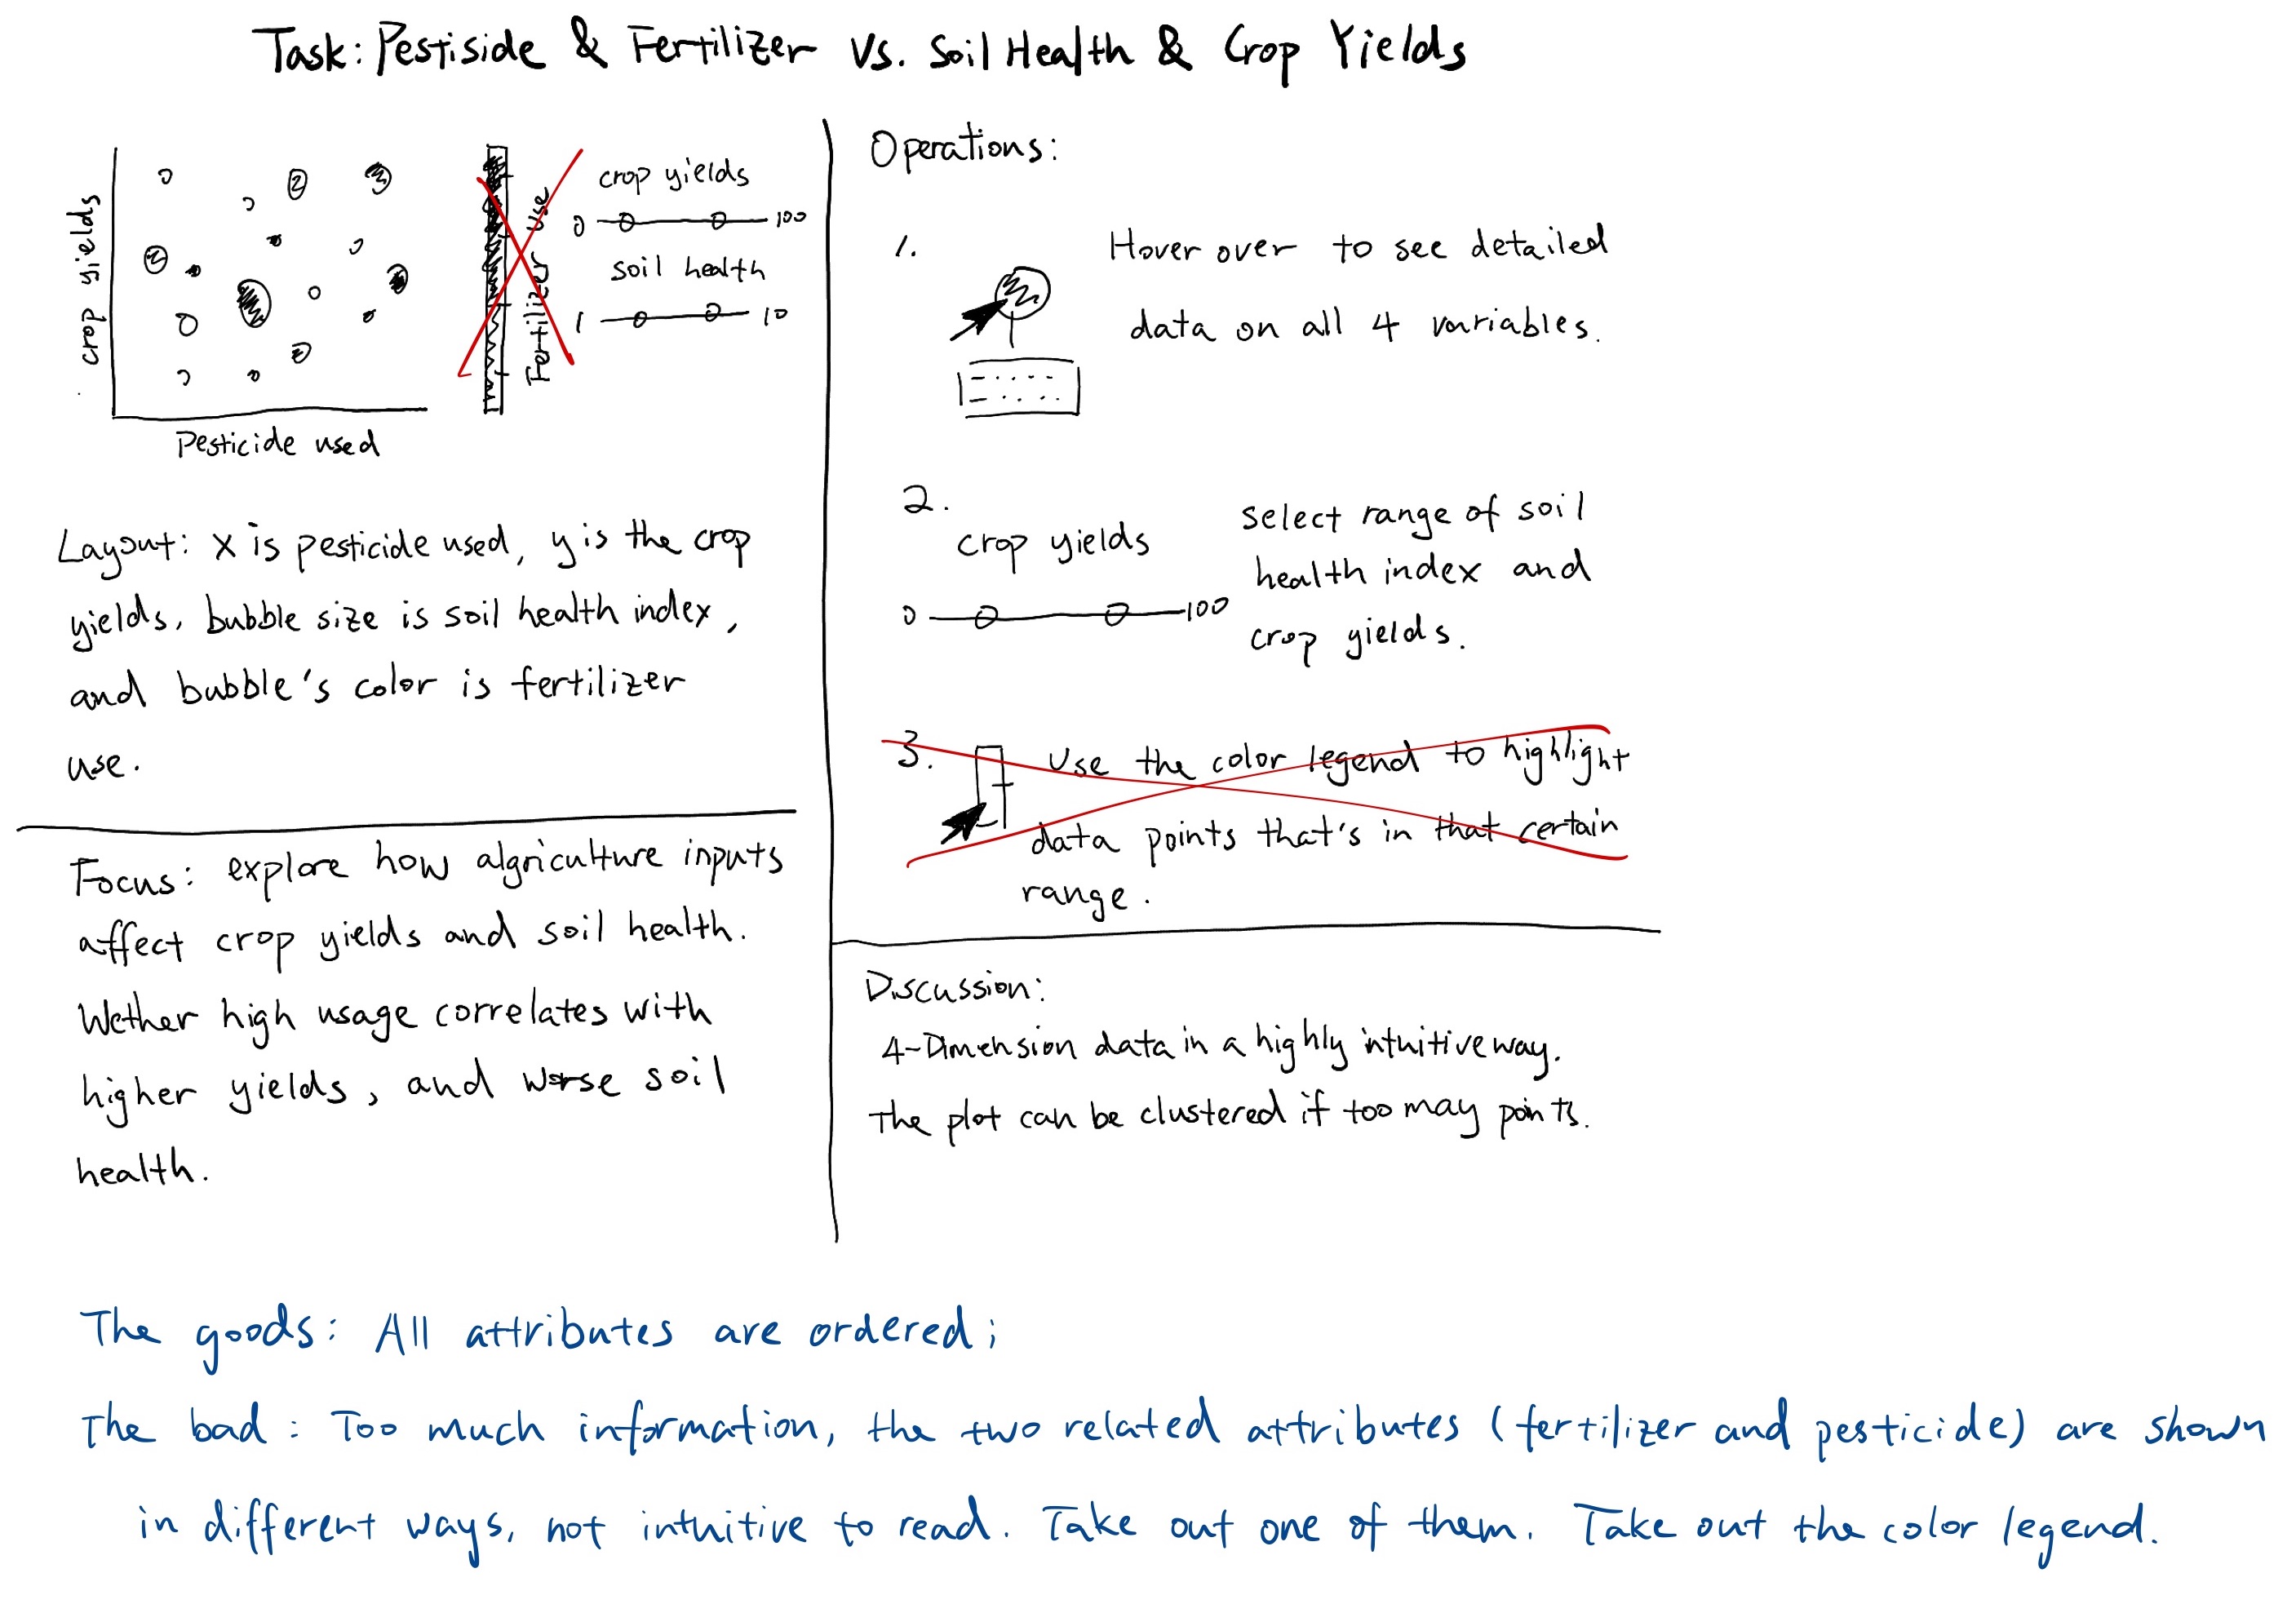 Task: Pestiside & Fertilizer Vs. Soil Health & Crop Yields
crop yields
Pesticide used
Fertilizer use
crop yields
0 100
soil health
1 10
Layout: X is pesticide used, y is the crop
yields, bubble size is soil health index,
and bubble's color is fertilizer
use.
Focus: explore how algriculture inputs
affect crop yields and soil health.
Wether high usage correlates with
higher yields, and worse soil
health.
Operations:
1.
Hover over to see detailed
data on all 4 variables.
2.
crop yields
0 100
select range of soil
health index and
crop yields.
3. Use the color legend to highlight
data points that's in that certain
range.
Discussion:
4-Dimension data in a highly intuitive way.
The plot can be clustered if too may points.
The goods: All attributes are ordered;
The bad: Too much information, the two related attributes (fertilizer and pesticide) are shown
in different ways, not intuitive to read. Take out one of them. Take out the color legend.